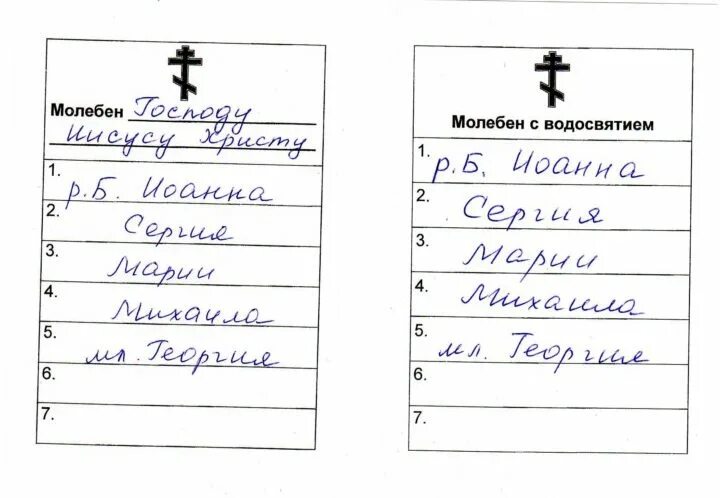 Молебен Господу
Иисусу Христу
1. р.Б. Иоанна
2. Сергия
3. Марии
4. Михаила
5. мл. Георгия
6.
7.
Молебен с водосвятием
1. р.Б. Иоанна
2. Сергия
3. Марии
4. Михаила
5. мл. Георгия
6.
7.